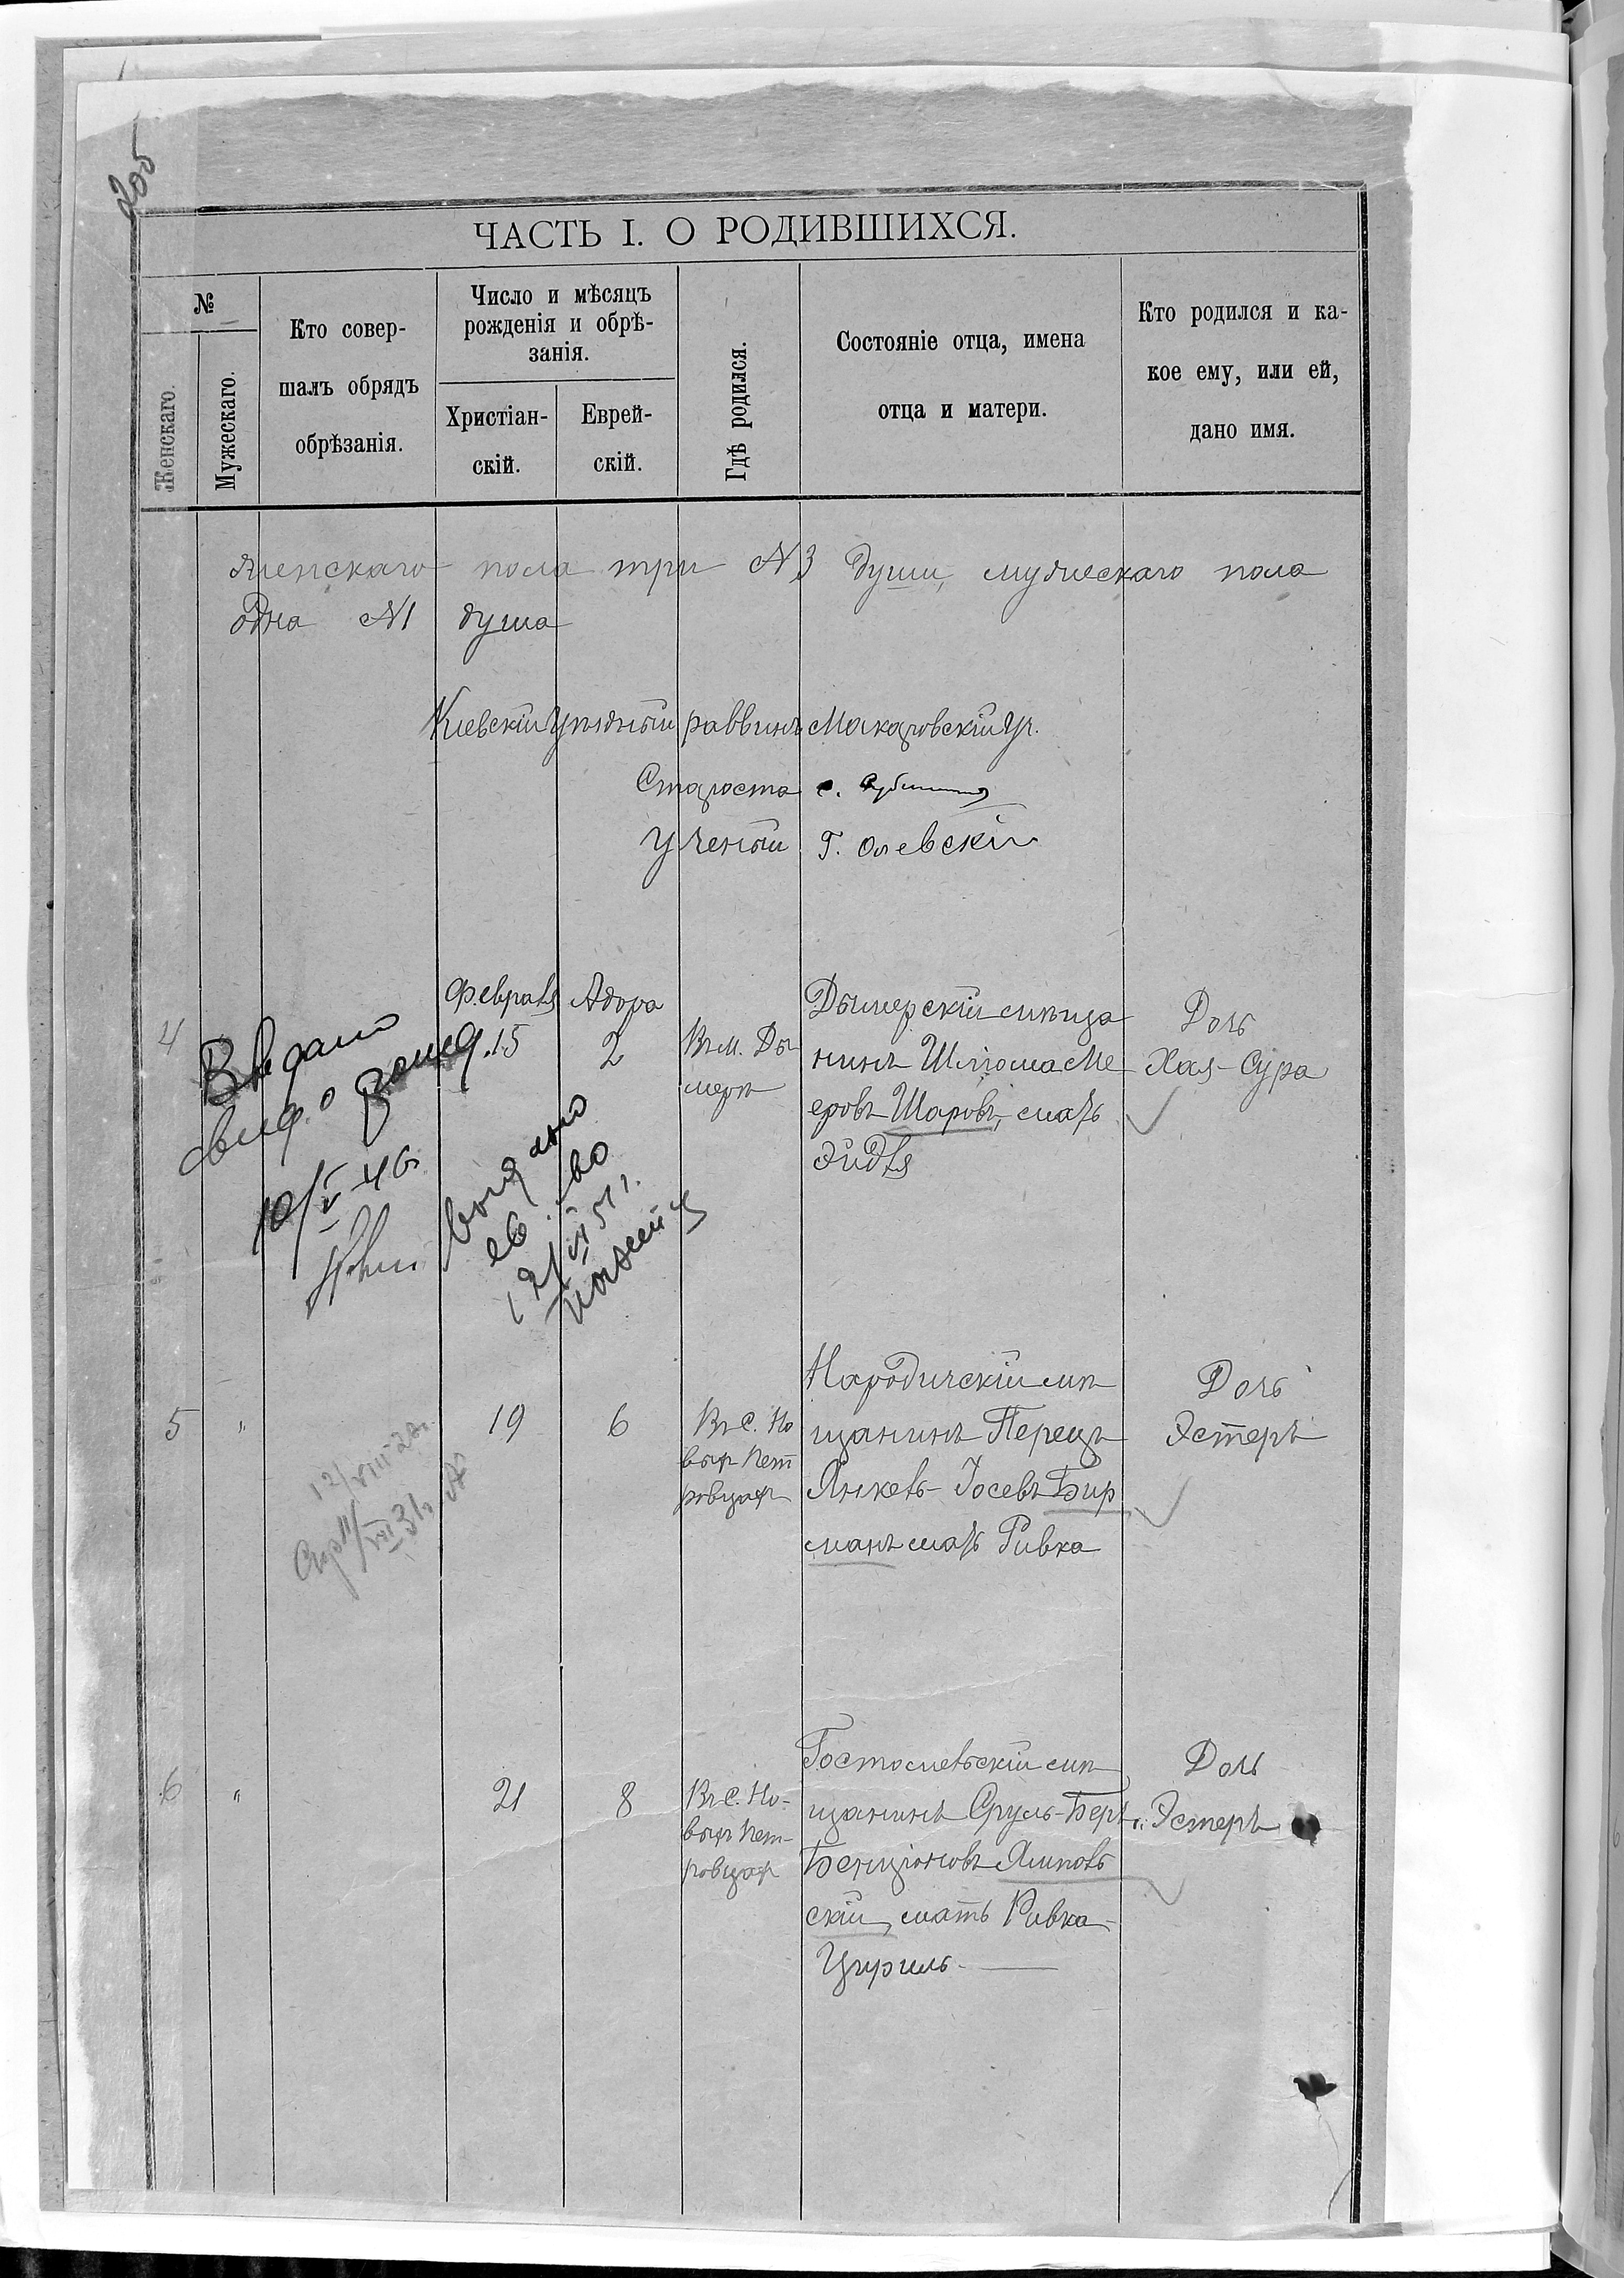 205
ЧАСТЬ I. О РОДИВШИХСЯ.
№
Женскаго.
Мужескаго.
Кто совер-
шалъ обрядъ
обрѣзанія.
Число и мѣсяцъ
рожденія и обрѣ-
занія.
Христіан-
скій.
Еврей-
скій.
Гдѣ родился.
Состояніе отца, имена
отца и матери.
Кто родился и ка-
кое ему, или ей,
дано имя.
женскаго пола три №3 души, мужескаго пола
одна №1 душа
Кіевскій Уѣздный раввинъ Макаровскій уч.
Староста С.
Ученый Г. Олевскій
4
Февраля
15
Адора
2
Въ м. Ды
мерѣ
Дымерскій мѣща
нинъ Шлиома Ме
еровъ Шаровъ, мать
Эйдля
Дочь
Хая-Сура
свид. о рожд.
10/V 46.
Выдано
св-во
12/VI 51 г.
5
"
12/VIII 28г.
11/VII 31г.
19
6
Въ С. Но
выхъ Пет
ровцахъ
Народичскій мѣ
щанинъ Перецъ
Янкель-Іосевъ Бир
манъ мать Ривка
Дочь
Эстеръ
6
"
21
8
Въ С. Но-
выхъ Пет-
ровцахъ
Гостомельскій мѣ
щанинъ Сруль-Беръ
Бенціоновъ Ямполь
скій, мать Ривка-
Цириль
Дочь
Эстеръ